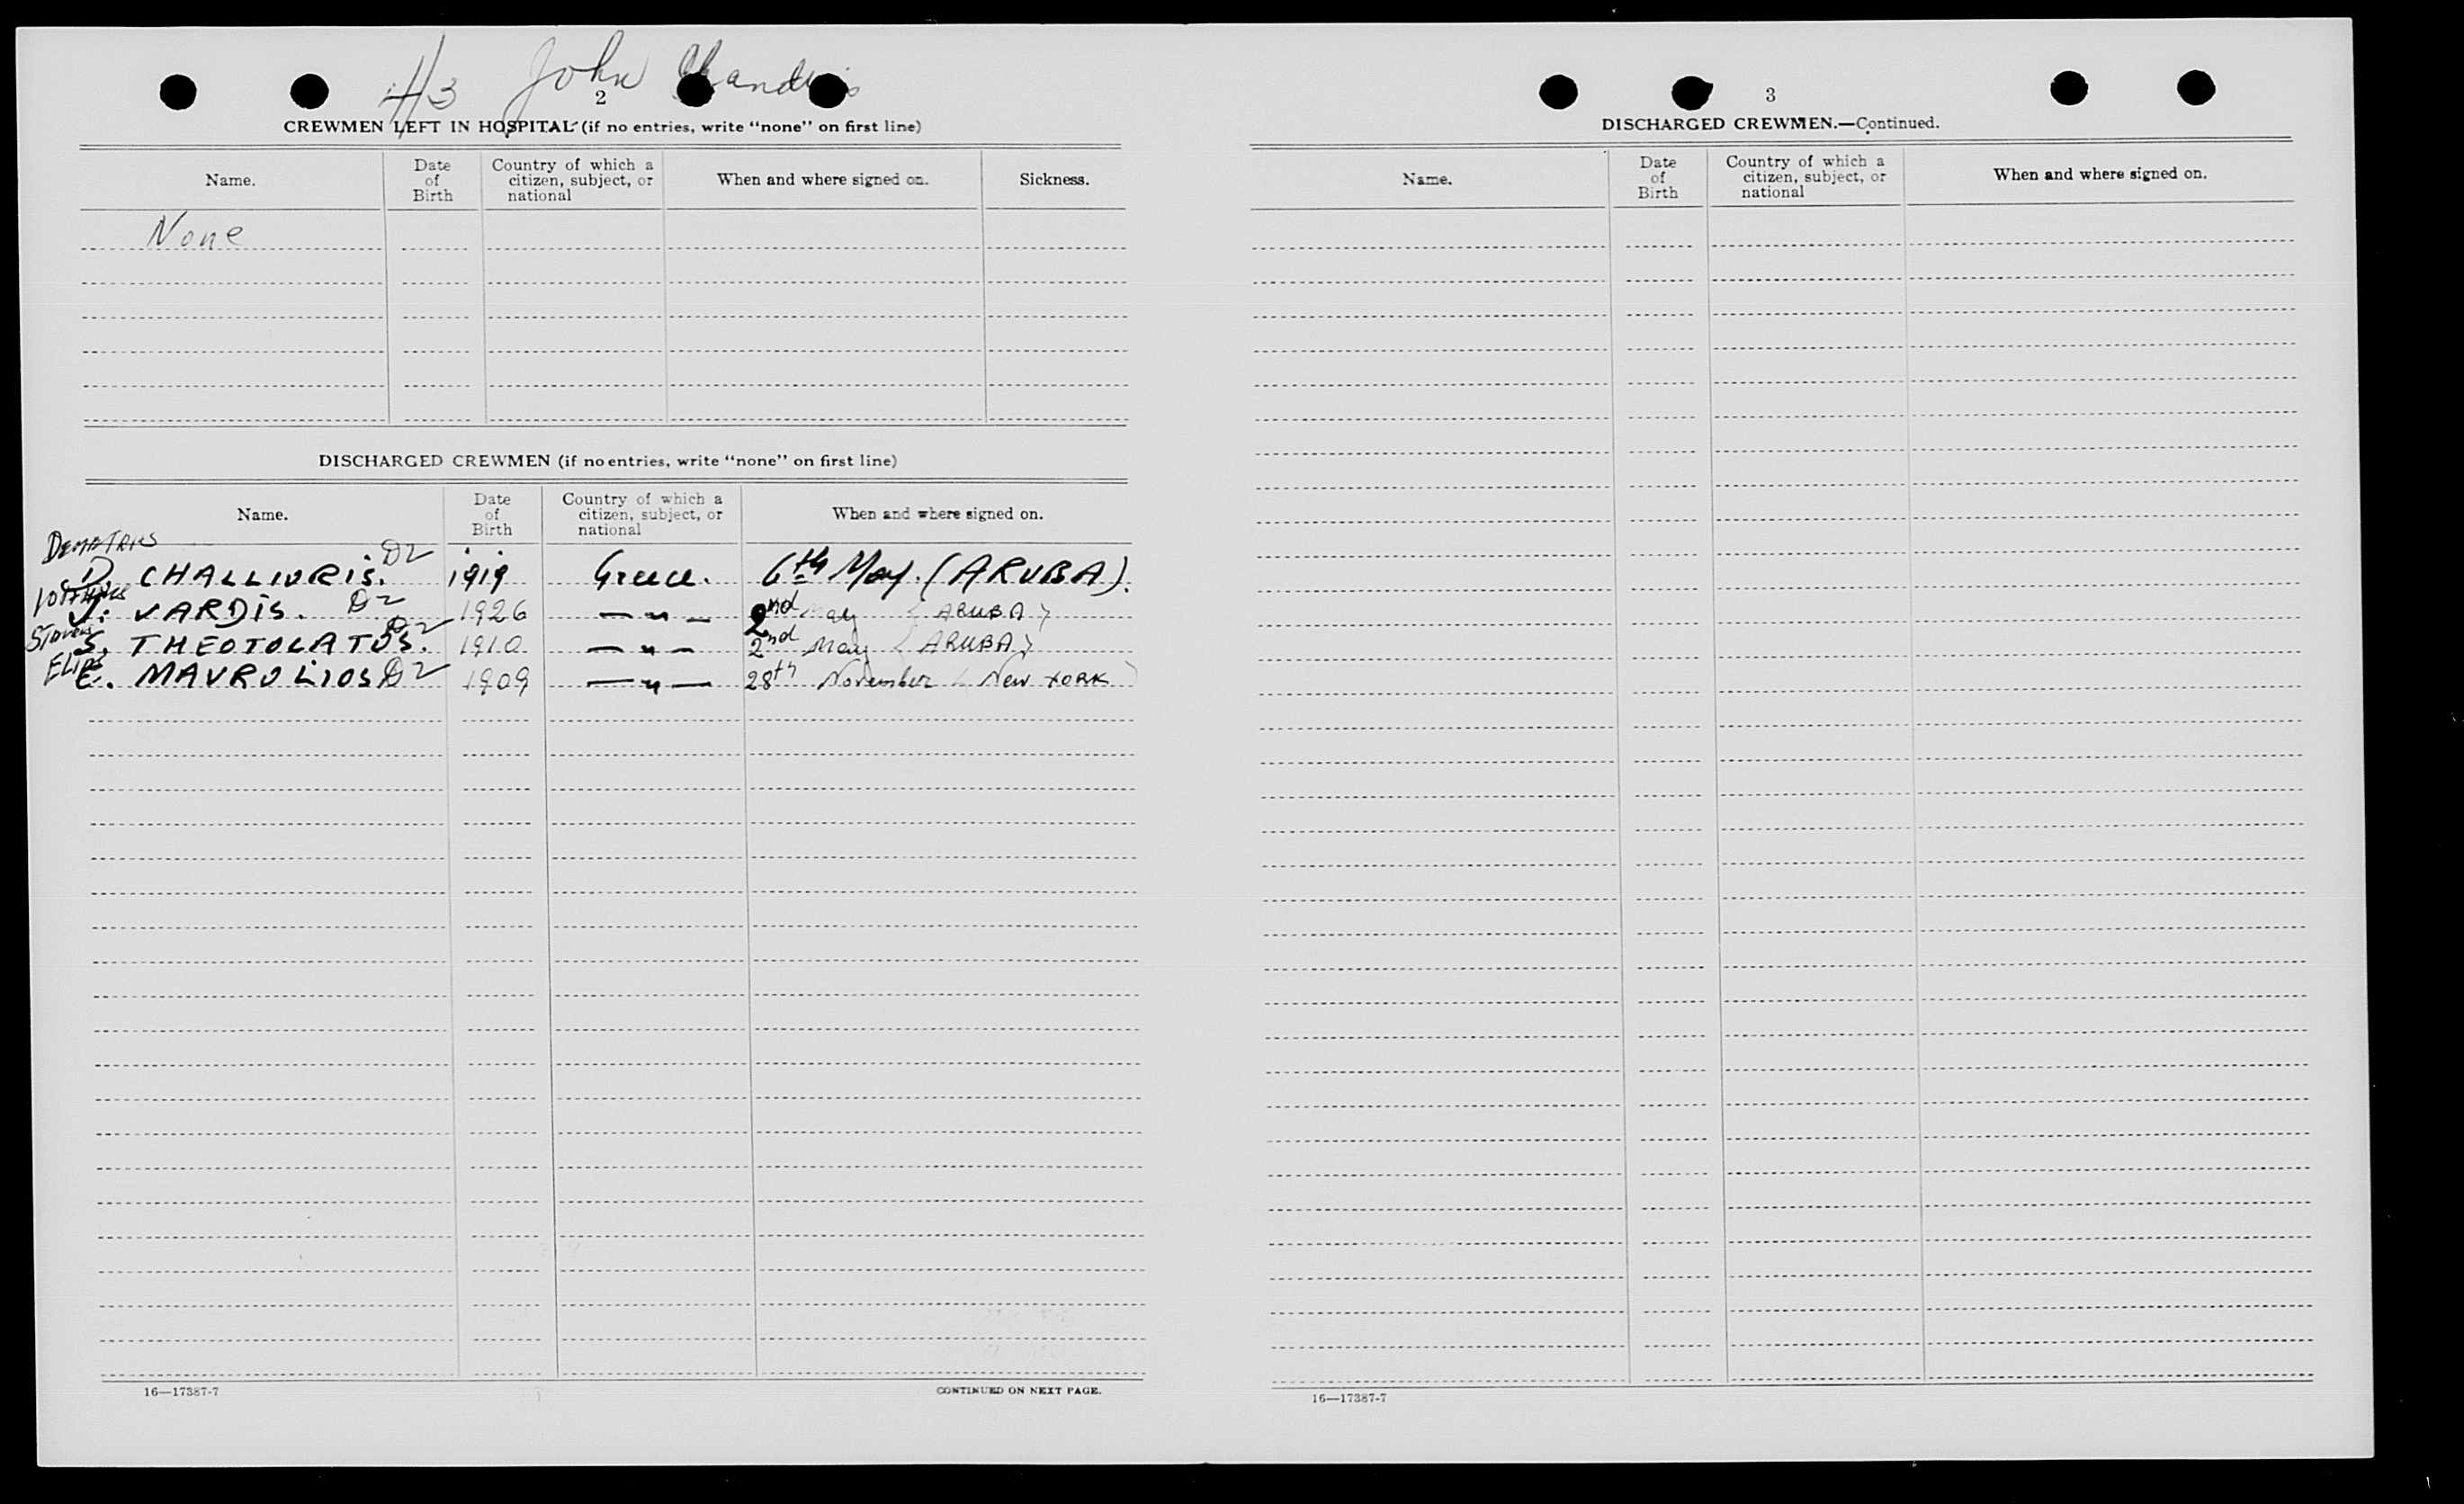 #3 John Chandris
2
CREWMEN LEFT IN HOSPITAL (if no entries, write "none" on first line)
Name. Date of Birth Country of which a citizen, subject, or national When and where signed on. Sickness.
None
DISCHARGED CREWMEN (if no entries, write "none" on first line)
Name. Date of Birth Country of which a citizen, subject, or national When and where signed on.
DEMETRIUS
D. CHALLIORIS. D2 1919 Greece. 6th May. (ARUBA).
J. VARDIS. D2 1926 — " — 2nd May (ARUBA)
S. THEOTOCATOS. D2 1910 — " — 2nd May (ARUBA)
E. MAVROLIOS D2 1909 — " — 28th November (New YORK)
16—17387-7 CONTINUED ON NEXT PAGE.
3
DISCHARGED CREWMEN.—Continued.
Name. Date of Birth Country of which a citizen, subject, or national When and where signed on.
16—17387-7